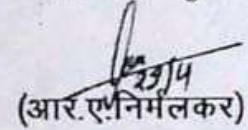 29/4
(आर.ए.निर्मलकर)